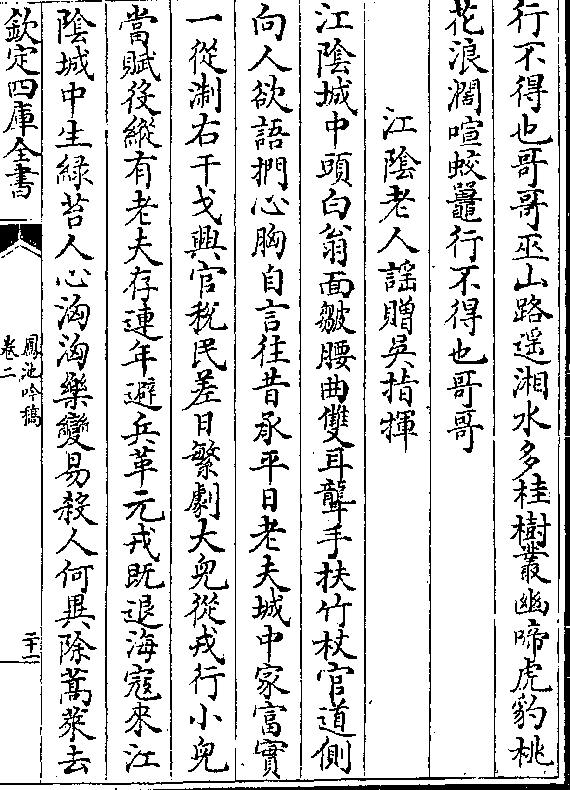 行不得也哥哥巫山路遥湘水多桂樹叢幽啼虎豹桃
花浪濶喧蛟鼉行不得也哥哥
江陰老人謡贈吳指揮
江陰城中頭白翁面皺腰曲雙耳聾手扶竹杖官道側
向人欲語捫心胸自言往昔承平日老夫城中家富實
一從淛右干戈興官稅民差日繁劇大兒從戎行小兒
當賦役縱有老夫存連年避兵革元戎既退海寇來江
陰城中生緑苔人心洶洶樂變易殺人何異除蒿萊去
欽定四庫全書
鳳池吟稿
卷二
二十二